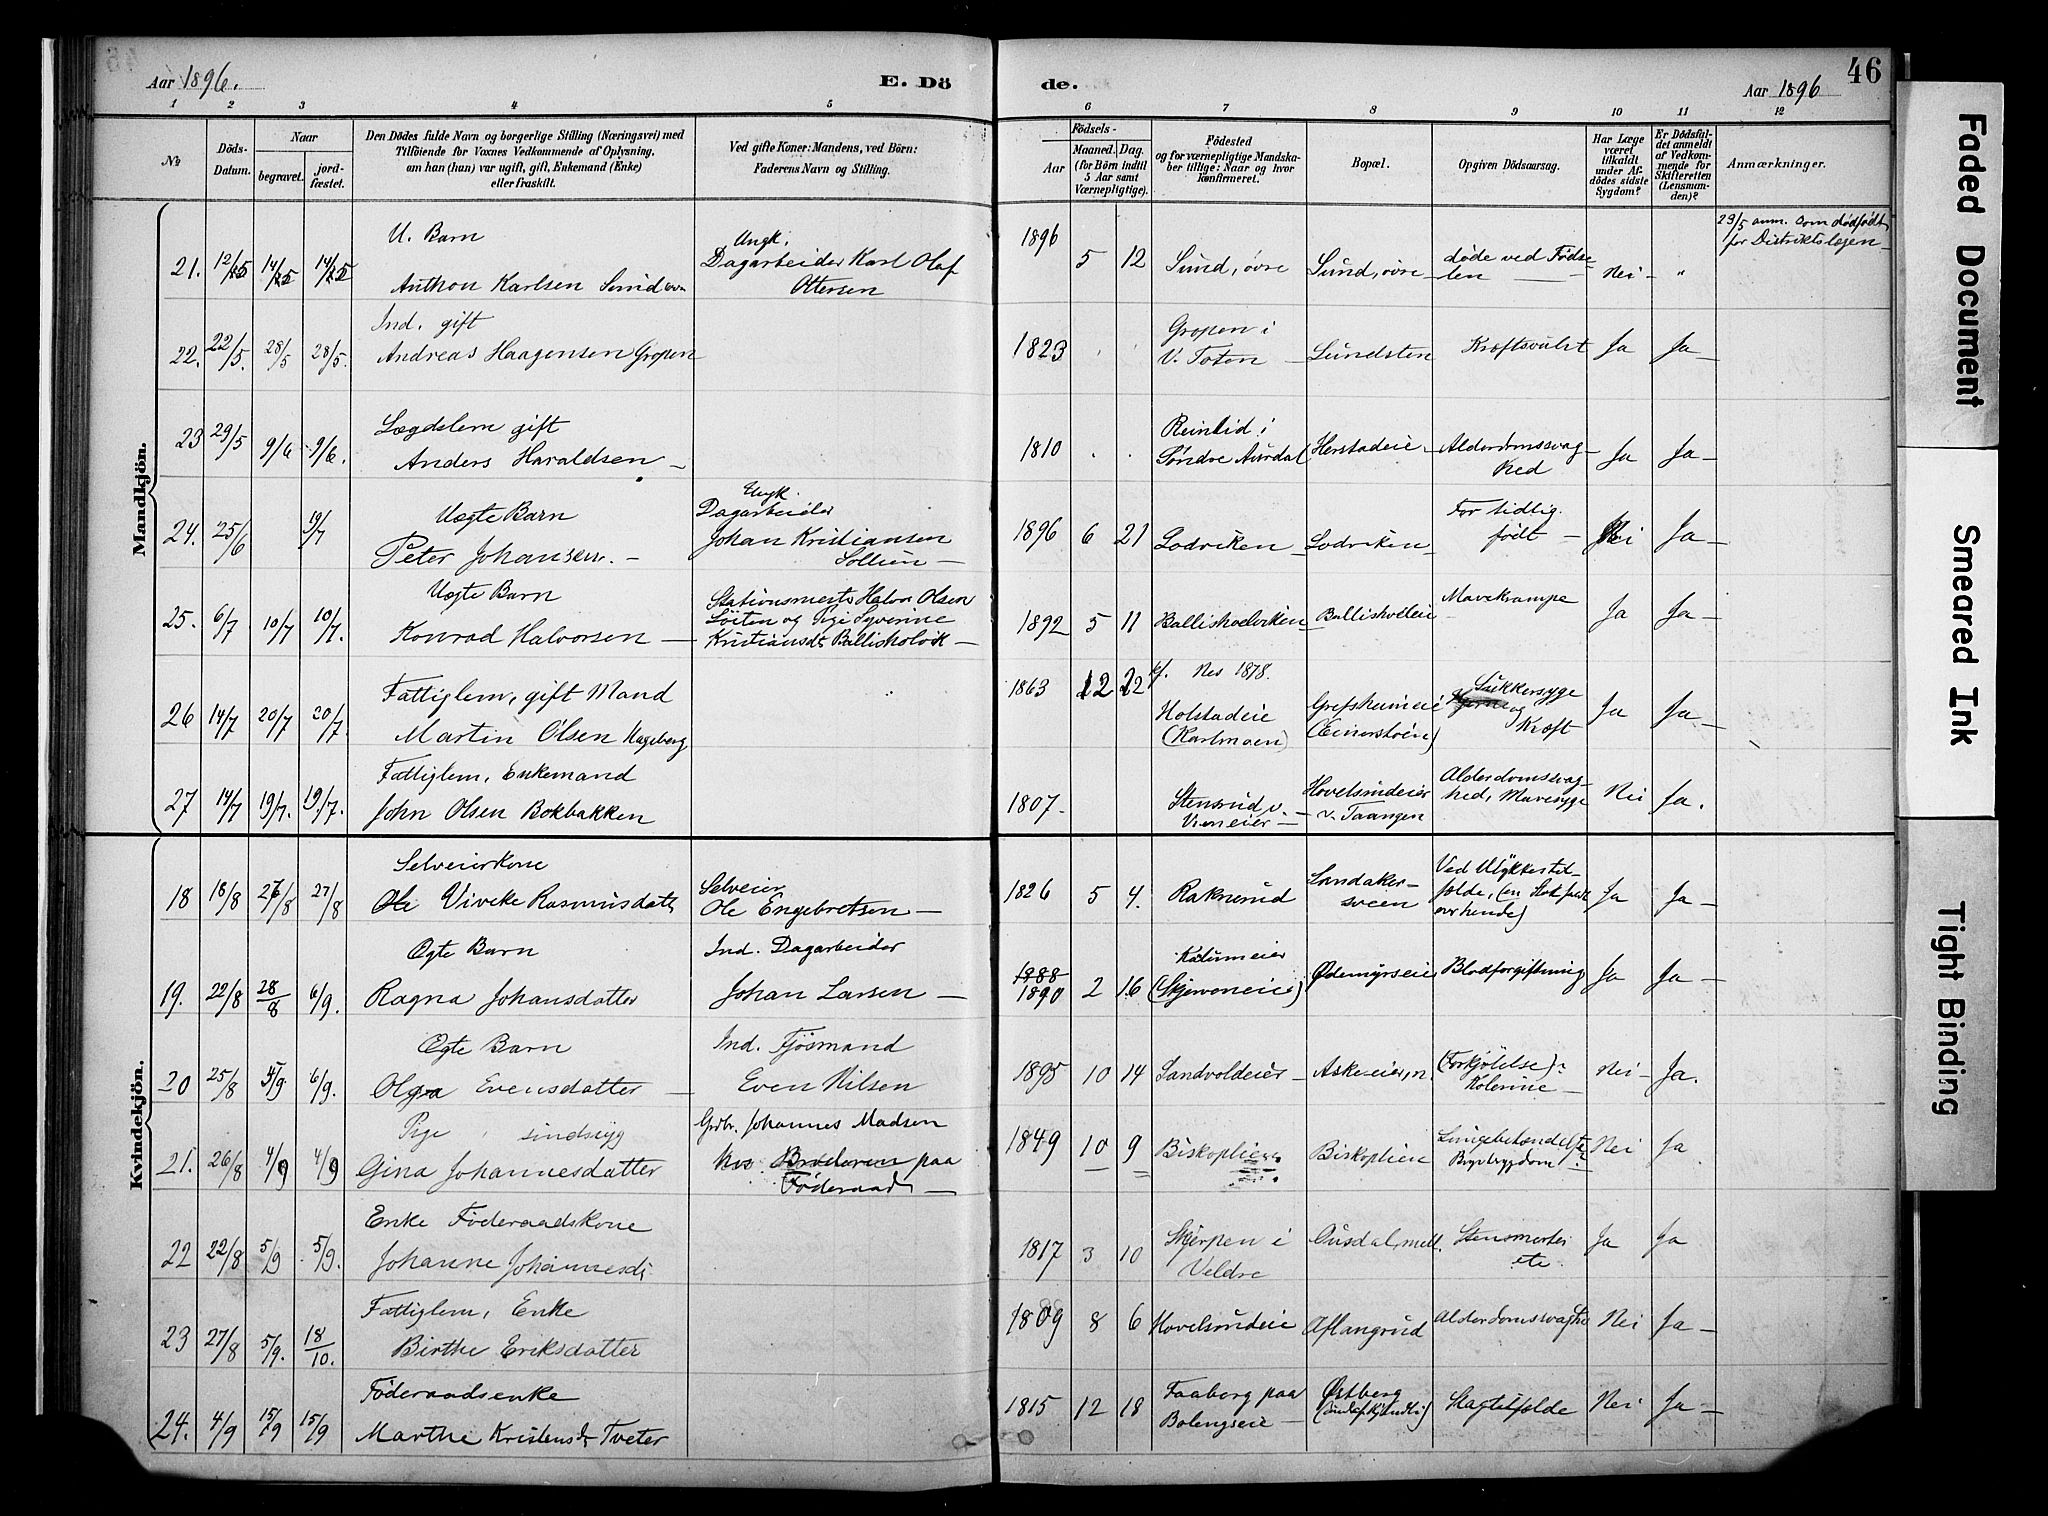 Aar 1896.
E. Dö
de.
Aar 1896
46
1 2 3 4 5 6 7 8 9 10 11 12
No
Döds-Datum.
Naar
begravet.
jordfæstet.
Den Dödes fulde Navn og borgerlige Stilling (Næringsvei) med
Tilföiende for Voxnes Vedkommende af Oplysning,
om han (hun) var ugift, gift, Enkemand (Enke)
eller fraskilt.
Ved gifte Koner: Mandens, ved Börn:
Faderens Navn og Stilling.
Födsels-
Aar
Maaned. Dag.
(for Börn indtil
5 Aar samt
Værnepligtige).
Födested
og for værnepligtige Mandskaber
tillige: Naar og hvor
konfirmeret.
Bopæl.
Opgiven Dödsaarsag.
Har Læge
været
tilkaldt
under Afdödes
sidste
Sygdom?
Er Dödsfaldet
anmeldt
af Vedkommende
for
Skifteretten
(Lensmanden)?
Anmærkninger.
Mandkjön.
21. 12/5 14/5 14/5
U. Barn
Anthon Karlsen Sund
Ungk.
Dagarbeider Karl Olaf
Ottersen
1896 5 12
Sund, övre
Sund, övre
döde ved Födse-
len
Nei - "
23/5 anm. som dödfödt
for Distriktslægen
22. 22/5. 28/5 28/5.
Ind. gift
Andreas Haagensen Gropen
1823
Gropen i
V. Toten
Sundsten
Kræftsvulst
Ja Ja
23 29/5 9/6 9/6.
Lægdslem gift
Anders Haraldsen
1810
Reinlid i
Söndre Aurdal
Herstadeie
Alderdomssvag-
hed
Ja Ja
24. 25/6 19/7
Uægte Barn
Peter Johansen.
Ungk.
Dagarbeider
Johan Kristiansen
Sollien
1896 6 21
Lodviken
Lodviken
For tidlig
födt
Nei Ja
25. 6/7 10/7 10/7.
Uægte Barn
Konrad Halvorsen
Stationsmester Halvor Olsen
Löiten og Pige Syverine
Kristiansdt. Ballisholvik
1892 5 11
Ballishoelviken
Ballishoeleie
Mavekrampe
Ja Ja
26 14/7 20/7 20/7.
Fattiglem, gift Mand
Martin Olsen Hageberg
1863 12 22
kf. Nes 1878.
Holstadeie
(Karlmoen)
Grefsheimeie
(Einerstöen)
Sukkersyge
og
Kræft
Ja Ja
27 14/7 19/7. 19/7.
Fattiglem, Enkemand
John Olsen Bokbakken
1807.
Stensrud v.
Hovelsrudeier
v. Taangen
Alderdomssvag-
hed, Mavesyge
Nei Ja.
Kvindekjön.
18 18/8 27/8 27/8
Selveierkone
Ole Viveke Rasmusdatter
Selveier
Ole Engebretsen
1826 5 4.
Raknerud
Landaker-
sveen
Ved Ulykkestil-
fælde,
over hende)
Ja Ja
19. 22/8 28/8 6/9.
Ægte Barn
Ragna Johansdatter
Ind. Dagarbeider
Johan Larsen
1888
1890 2 16
(Skjerveneie)
Ödemyrseie
Blodforgiftning
Ja Ja
20 25/8 5/9 6/9.
Ægte Barn
Olga Evensdatter
Ind. Fjösmand
Even Nilsen
1895 10 14
Sandvoldeier
Askeeier, n.
(Forkjölelse)
Kolerine
Nei Ja.
21. 26/8 4/9 4/9
Pige, sindssyg
Gina Johannesdatter
Grdbr. Johannes Madsen
hos Broderen paa
Föderaad
1849 10 9
Biskoplien
Biskoplien
Lungebetændelse
Brystsygdom?
Nei Ja
22 22/8 5/9 5/9.
Enke Föderaadskone
Johanne Johannesdt
1817 3 10
Skjerpen i
Veldre
Ousdal, mell.
Stensmerter
etc.
Ja Ja
23 27/8 5/9. 18/10.
Fattiglem, Enke
Birthe Eriksdatter
1809 8 6
Hovelsrudeie
Aflangrud
Alderdomssvaghed
Nei Ja
24. 4/9 15/9 15/9
Föderaadsenke
Marthe Kristensdt Tveter
1815 12 18
Faaberg paa
Bolengseie
Östberg
Slagtilfælde
Nei Ja
Faded Document
Smeared Ink
Tight Binding